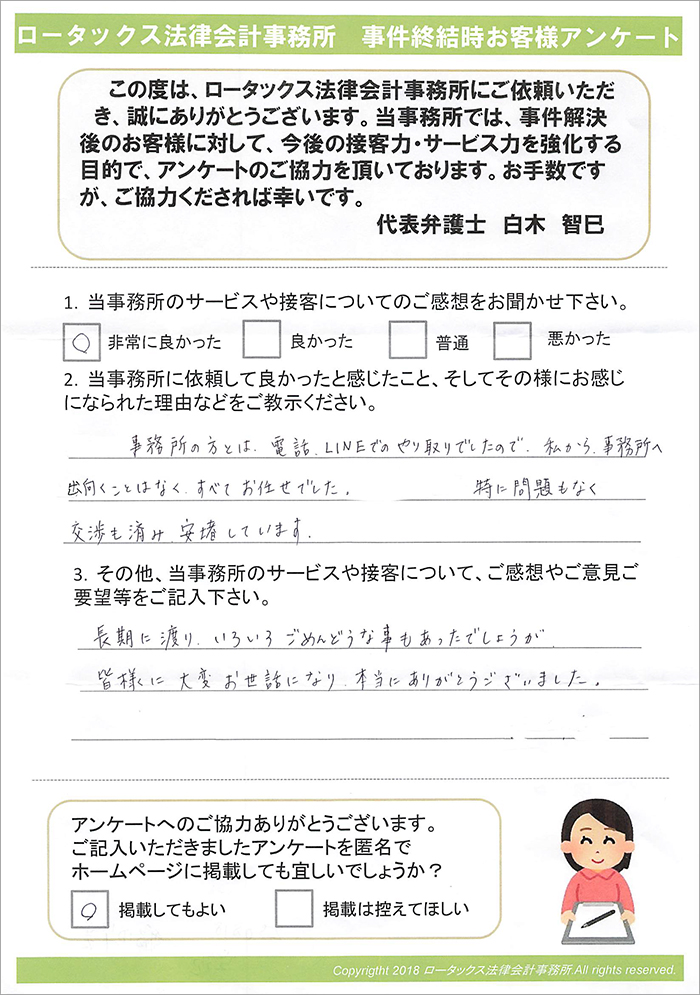 ロータックス法律会計事務所　事件終結時お客様アンケート
この度は、ロータックス法律会計事務所にご依頼いただ
き、誠にありがとうございます。当事務所では、事件解決
後のお客様に対して、今後の接客力・サービス力を強化する
目的で、アンケートのご協力を頂いております。お手数です
が、ご協力くだされば幸いです。
代表弁護士　白木　智巳
1. 当事務所のサービスや接客についてのご感想をお聞かせ下さい。
○ 非常に良かった　良かった　普通　悪かった
2. 当事務所に依頼して良かったと感じたこと、そしてその様にお感じ
になられた理由などをご教示ください。
事務所の方とは、電話、LINEでのやり取りでしたので、私から、事務所へ
出向くことはなく、すべてお任せでした。　特に問題もなく
交渉も済み、安堵しています。
3. その他、当事務所のサービスや接客について、ご感想やご意見ご
要望等をご記入下さい。
長期に渡り、いろいろごめんどうな事もあったでしょうが、
皆様くに 大変お世話になり、本当にありがとうございました。
アンケートへのご協力ありがとうございます。
ご記入いただきましたアンケートを匿名で
ホームページに掲載しても宜しいでしょうか？
○ 掲載してもよい　掲載は控えてほしい
Copyrigtht 2018 ロータックス法律会計事務所 All rights reserved.